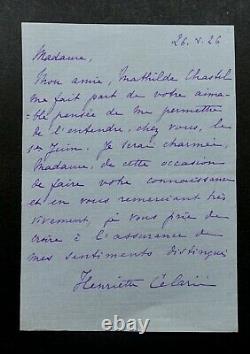 26. V. 26
Madame,
Mon amie, Mathilde Chastel
me fait part de votre aima-
ble pensée de me permettre
de l'entendre, chez vous, le
1er Juin. Je serai charmée,
Madame, de cette occasion
de faire votre connaissance
et en vous remerciant très
vivement, je vous prie de
croire à l'assurance de
mes sentiments distingués
Henriette Célarié
© 123rf.fr